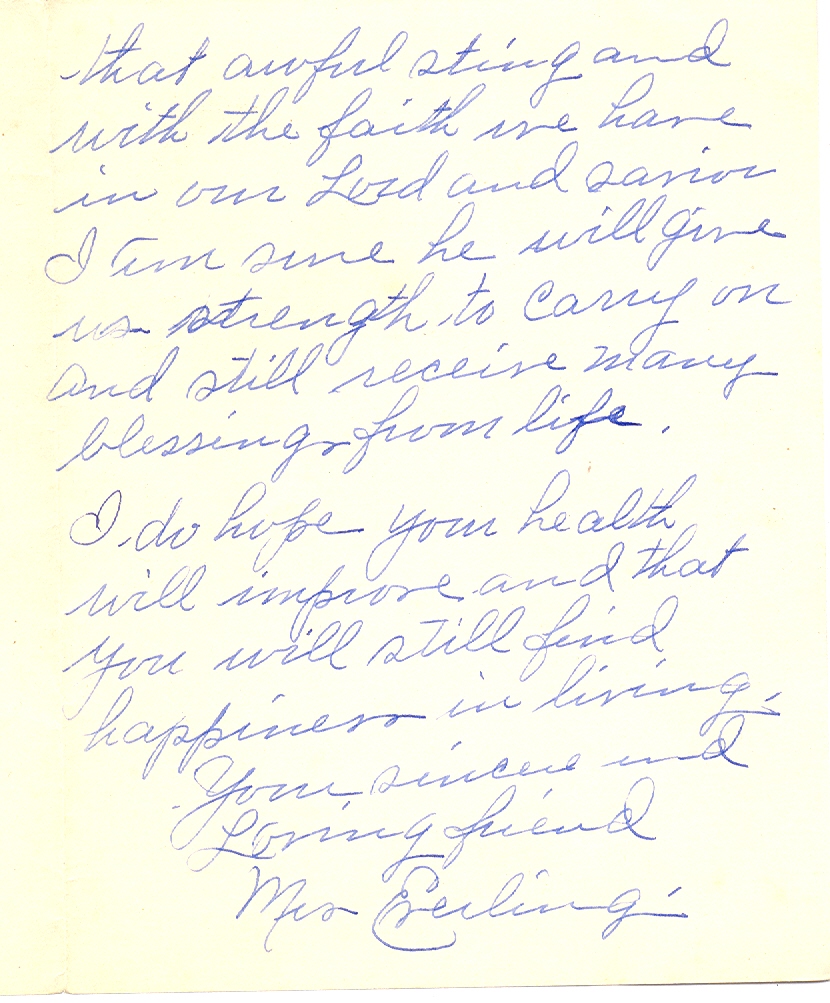 that awful sting and
with the faith we have
in our Lord and savior
I am sure he will give
us strength to carry on
and still receive many
blessings from life.
I do hope your health
will improve and that
you will still find
happiness in living.
Your sincere and
Loving friend
Mrs